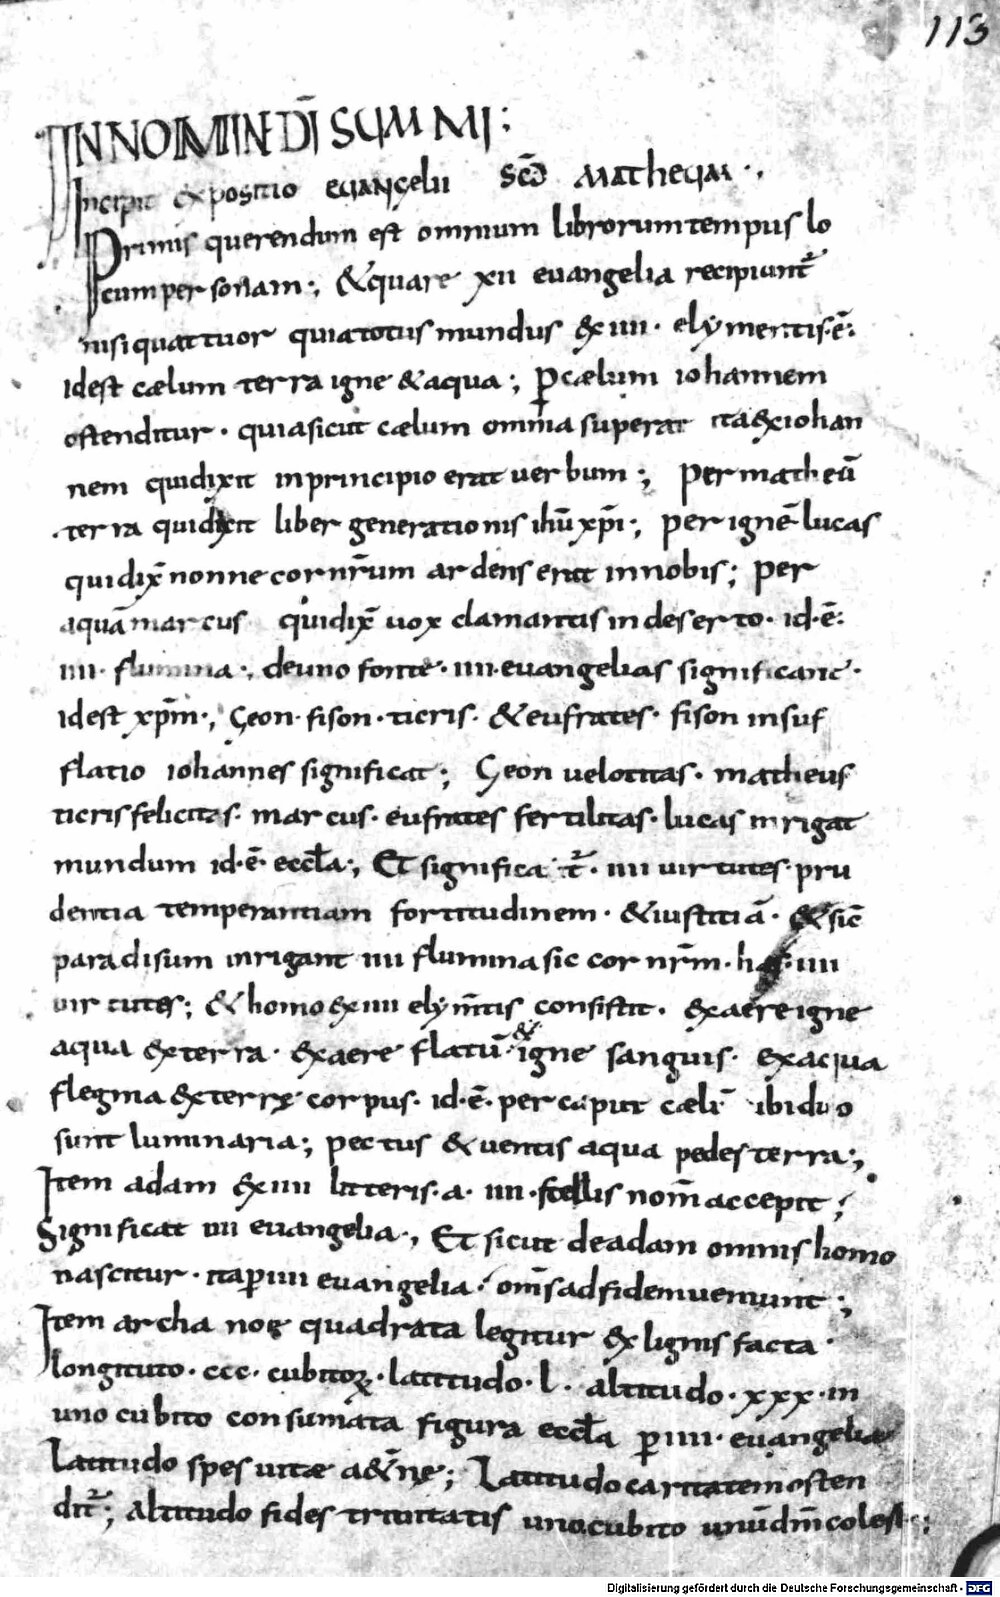 113
IN NOMIN DI SUMMI:
Incipit expositio evangelii scō matheum.,
Primis querendum est omnium librorum tempus lo
cum personam:, & quare xii evangelia recipiunt̄
nisi quattuor quia totus mundus ex iiii. elymentis.ē:
idest cælum terra igne & aqua; ꝑ cælum iohannem
ostenditur. quia sicut cælum omnia superat ita & iohan
nem qui dixit in principio erat verbum; per matheū
terra qui dixit liber generationis ihū xp̄i; per ignē lucas
qui dix̄ nonne cor nr̄um ardens erat in nobis; per
aquā marcus qui dix̄ vox clamantis in deserto. id.ē:
iiii. flumina:, de uno fonte. iiii. evangelias significant.
idest xp̄m., Geon. fison. ticris. & eufrates. fison insuf
flatio iohannes significat; Geon velocitas. matheus
ticris felicitas. marcus. eufrates fertilitas. lucas inrigat
mundum id.ē. eccla; Et significat̄. iiii virtutes. pru
dentia temperantiam fortitudinem. & iustitiā. & sic̄
paradisum inrigant iiii flumina sic cor nr̄m. iiii
virtutes; & homo ex iiii elym̄tis consistit. ex aere igne
aqua & terra. ex aere flatū. & igne sanguis. ex aqua
flegma & terre corpus. id.ē. per caput cæli ibi duo
sunt luminaria; pectus & ventis aqua pedes terra;
Item adam ex iiii litteris. a. iiii. stellis nom̄ accepit;
Significat iiii evangelia., Et sicut de adam omnis homo
nascitur. ita ꝑ iiii evangelia. om̄s ad fidem veniunt;
Item archa noe quadrata legitur ex lignis facta.
longituto. ccc. cubitoꝝ. latitudo. l. altitudo. xxx. in
uno cubito consumata figura eccla ꝑ iiii. evangelia
Latitudo spes vitæ a&̄ne; Latitudo caritatem osten
dit̄; altitudo fides trinitatis uno cubito unū dm̄ colest.;
Digitalisierung gefördert durch die Deutsche Forschungsgemeinschaft - DFG